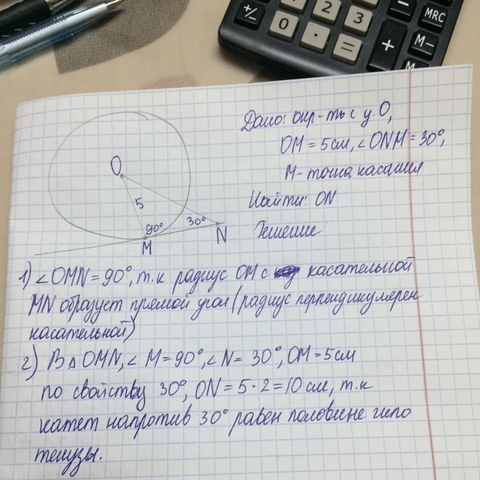 MRC
M-
M
+/-
0
.
=
+
Дано: окр-ть с ц. О,
OM = 5 см, ∠ONM = 30°,
M - точка касания
Найти: ON
Решение
O
5
90°
30°
M
N
1) ∠OMN = 90°, т.к радиус OM с касательной
MN образует прямой угол (радиус перпендикулярен
касательной)
2) В △ OMN, ∠ M = 90°, ∠ N = 30°, OM = 5 см
по свойству 30°, ON = 5 · 2 = 10 см, т.к
катет напротив 30° равен половине гипо
тенузы.